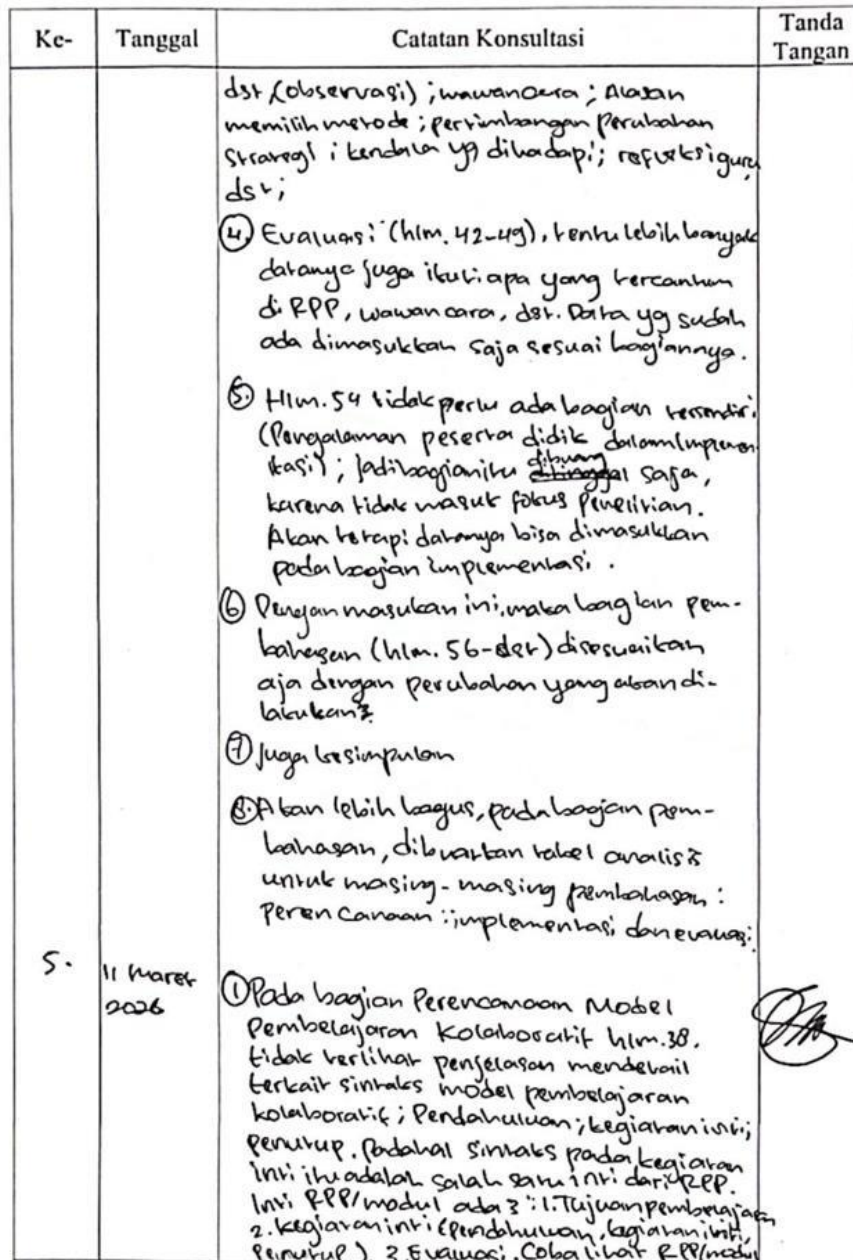 Ke-
Tanggal
Catatan Konsultasi
Tanda
Tangan
dst, (observasi) ; wawancara ; Alasan
memilih metode ; pertimbangan perubahan
strategi ; kendala yg dihadapi ; refleksi guru
dst ;
4. Evaluasi (hlm. 42-49), tentu lebih banyak
datanya juga ikuti apa yang tercantum
di RPP, wawancara, dst. Data yg sudah
ada dimasukkan saja sesuai bagiannya.
5. Hlm. 54 tidak perlu ada bagian tersendiri
(Pengalaman peserta didik dalam Implemen
tasi) ; Jadi bagian itu dibuang saja,
karena tidak masuk fokus penelitian.
Akan tetapi datanya bisa dimasukkan
pada bagian implementasi.
6 Dengan masukan ini, maka bagian pem-
bahasan (hlm. 56-dst) disesuaikan
aja dengan perubahan yang akan di-
lakukan
7 Juga kesimpulan
8. Akan lebih bagus, pada bagian pem-
bahasan, dibuatkan tabel analisis
untuk masing-masing pembahasan :
Perencanaan ; implementasi dan evaluasi
5.
11 Maret
2026
1 Pada bagian Perencanaan Model
Pembelajaran Kolaboratif hlm. 38.
tidak terlihat penjelasan mendetail
terkait sintaks model pembelajaran
kolaboratif ; Pendahuluan ; kegiatan inti ;
penutup. Padahal sintaks pada kegiatan
inti itu adalah salah satu inti dari RPP.
Inti RPP/modul ada 3 : 1. Tujuan pembelajaran
2. kegiatan inti (pendahuluan, kegiatan inti,
penutup) 3 Evaluasi. Coba lihat RPP/modul